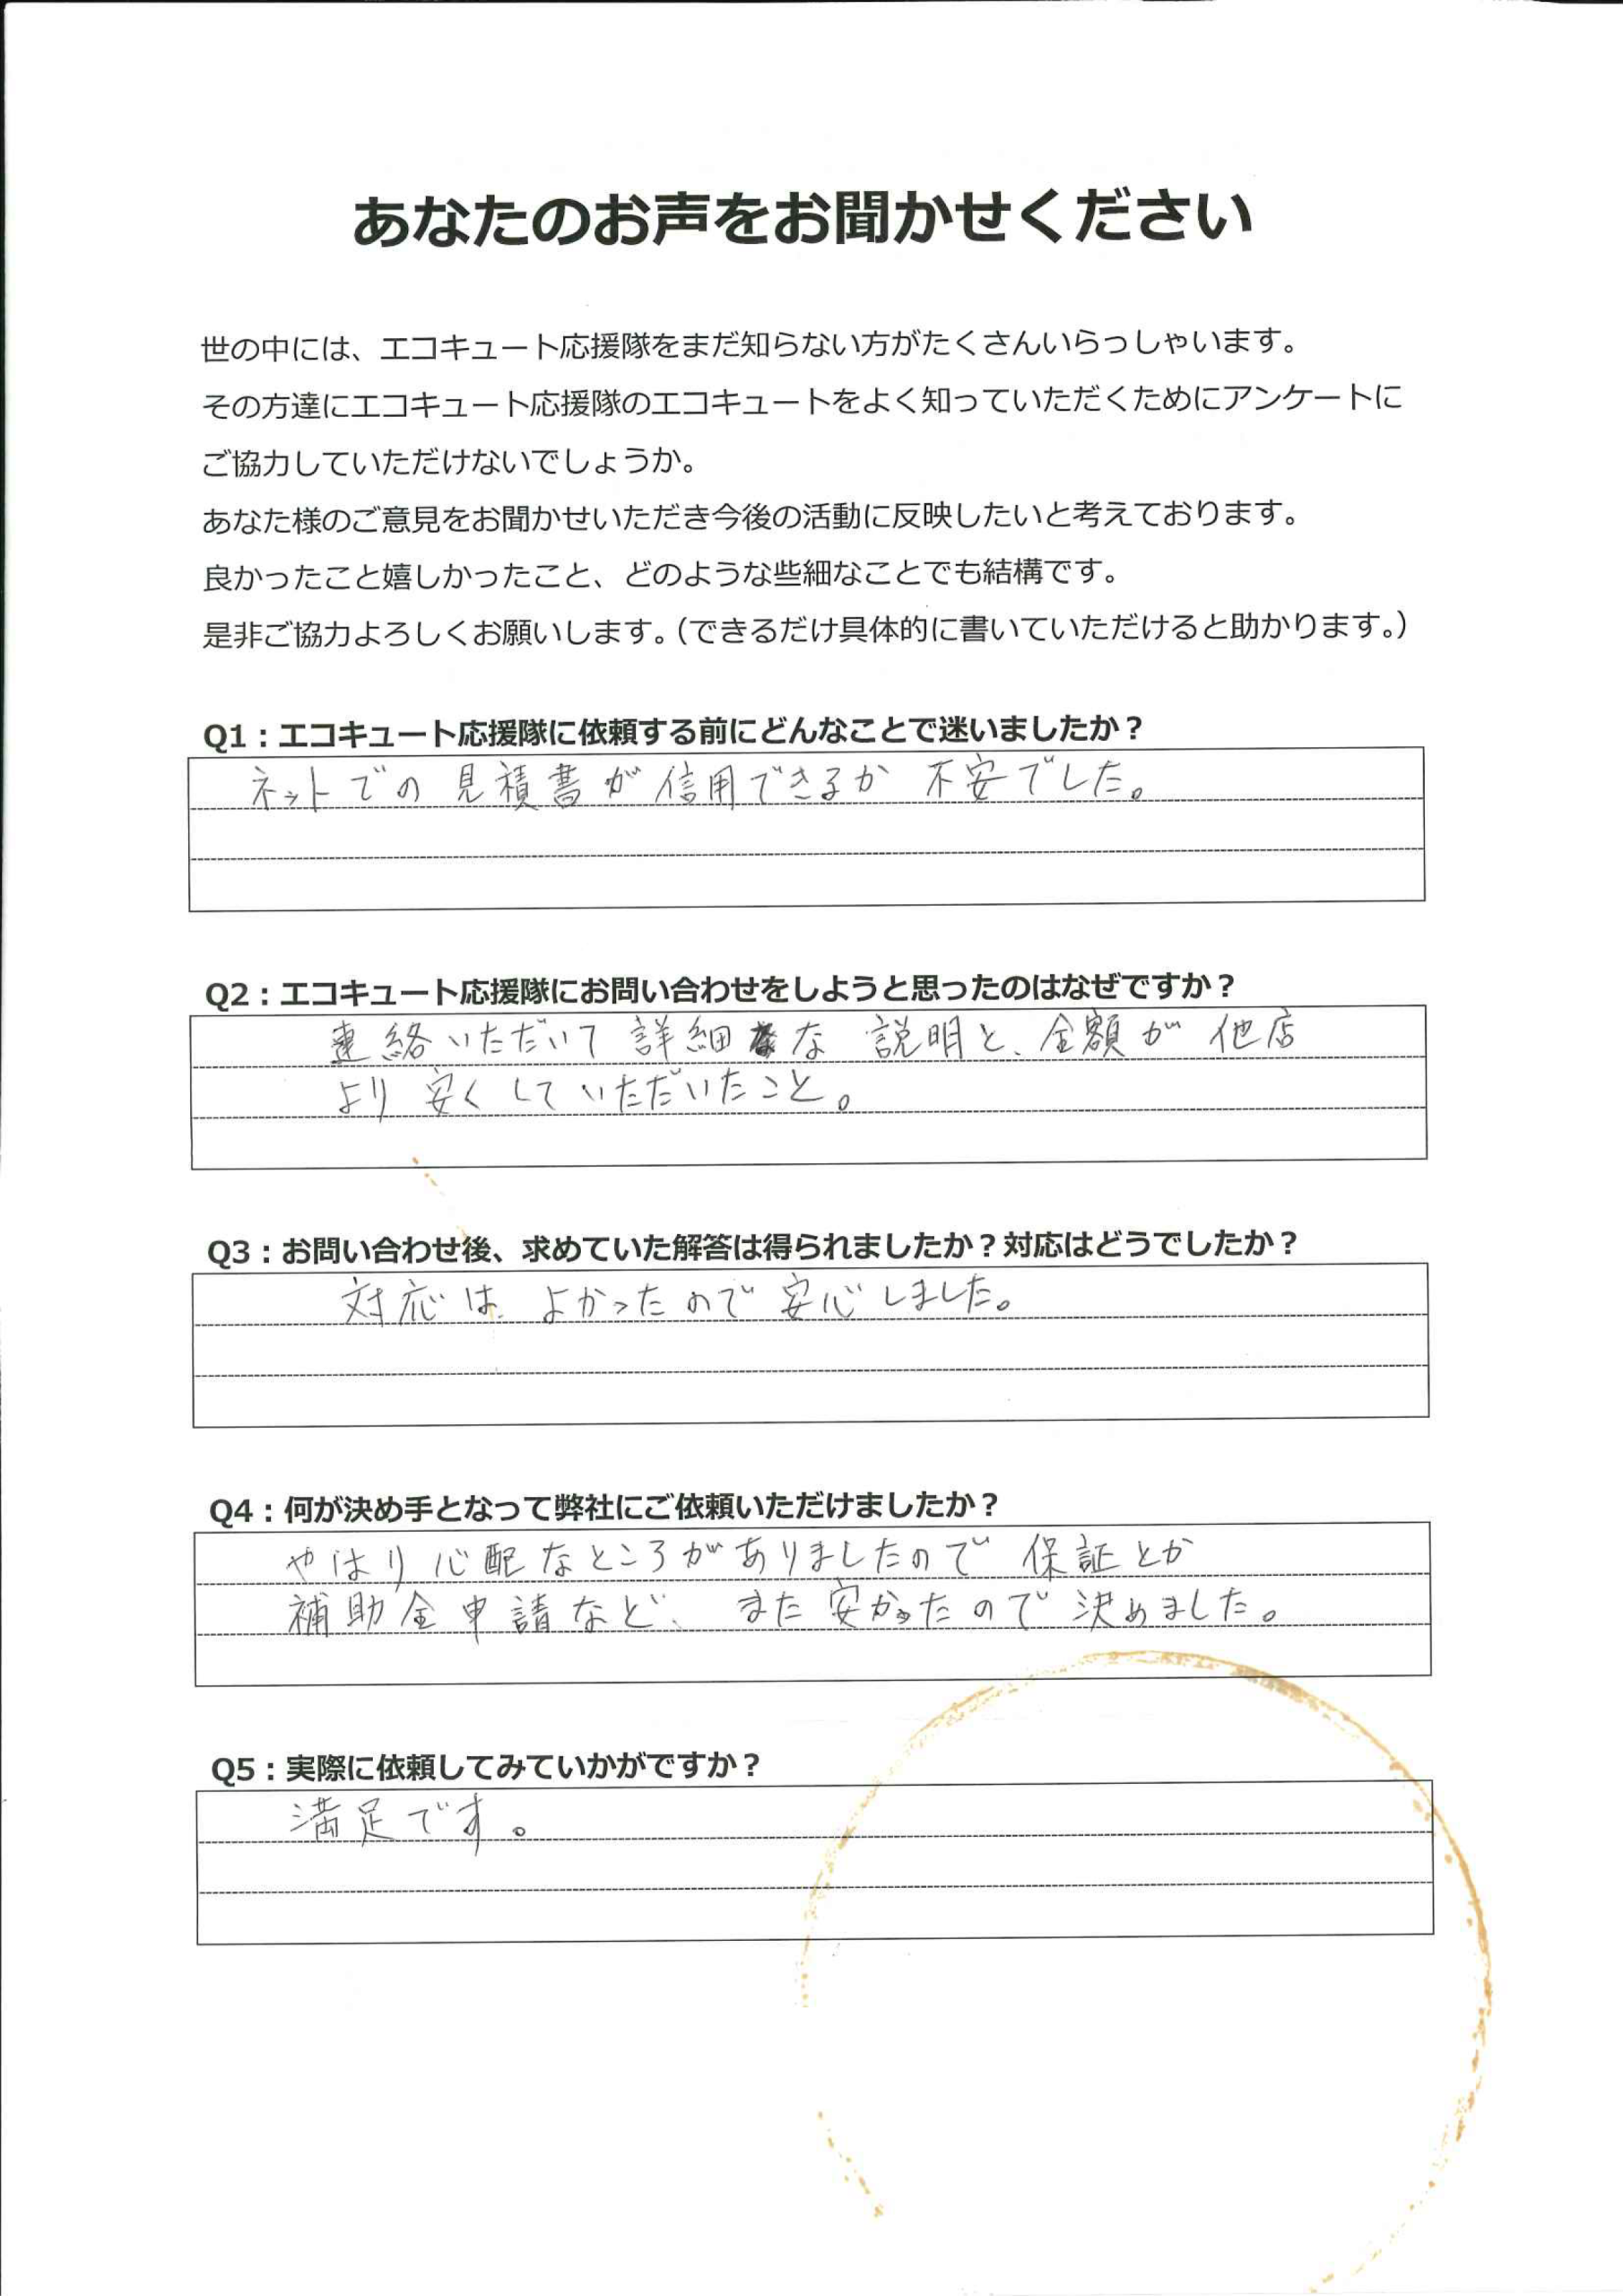 あなたのお声をお聞かせください
世の中には、エコキュート応援隊をまだ知らない方がたくさんいらっしゃいます。
その方達にエコキュート応援隊のエコキュートをよく知っていただくためにアンケートに
ご協力していただけないでしょうか。
あなた様のご意見をお聞かせいただき今後の活動に反映したいと考えております。
良かったこと嬉しかったこと、どのような些細なことでも結構です。
是非ご協力よろしくお願いします。（できるだけ具体的に書いていただけると助かります。）
Q1：エコキュート応援隊に依頼する前にどんなことで迷いましたか？
ネットでの見積書が信用できるか不安でした。
Q2：エコキュート応援隊にお問い合わせをしようと思ったのはなぜですか？
連絡いただいて詳細な説明と、金額が他店
より安くしていただいたこと。
Q3：お問い合わせ後、求めていた解答は得られましたか？対応はどうでしたか？
対応は、よかったので安心しました。
Q4：何が決め手となって弊社にご依頼いただけましたか？
やはり心配なところがありましたので保証とか
補助金申請など、また安かったので決めました。
Q5：実際に依頼してみていかがですか？
満足です。